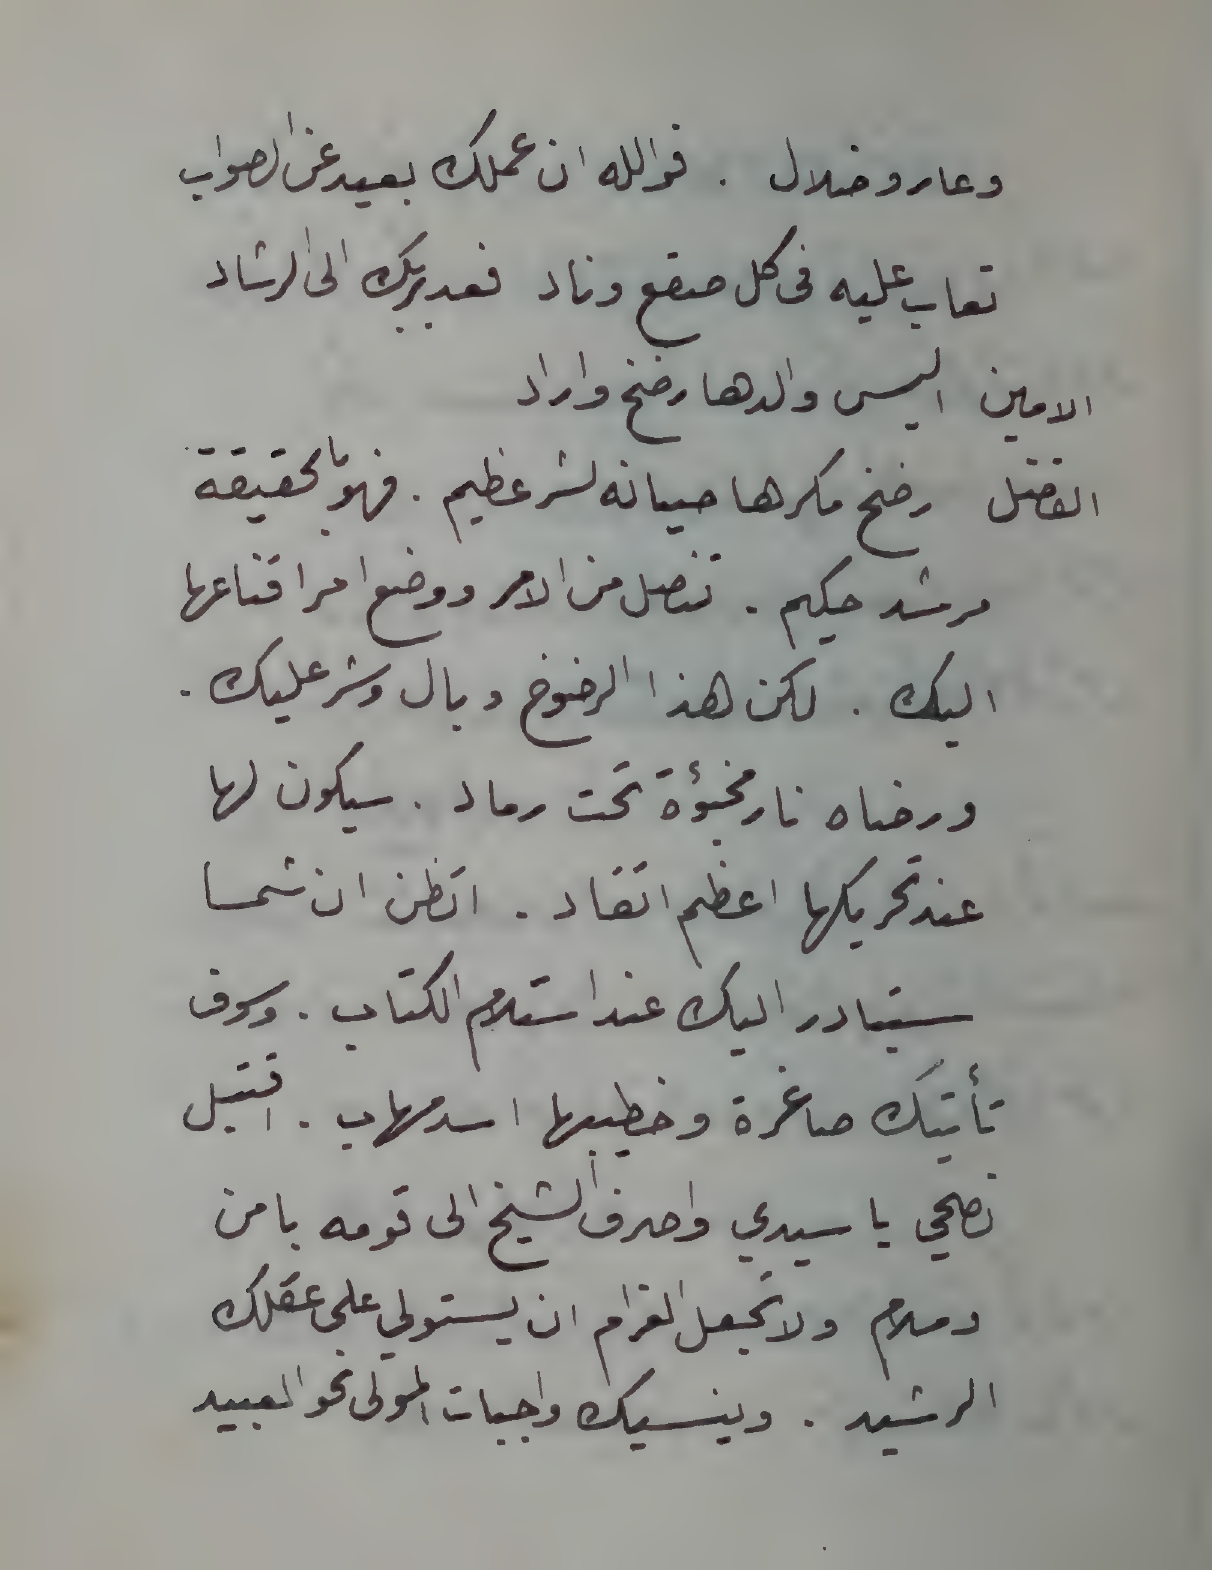 وعار وضلال . فوالله ان عملك بعيد عن الصواب
تعاب عليه في كل صقع وناد فعد بربك الى الرشاد
الامين اليس والدها رضخ واراد
الفضل رضخ مكرها صيانه لشر عظيم . فهو بالحقيقة
مرشد حكيم . تنصل من الامر ووضع امر اقناعها
اليك . لكن هذا الرضوخ وبال وشر عليك .
ورضاه نار مخبؤة تحت رماد . سيكون لها
عند تحريكها اعظم اتقاد . اتظن ان شمسا
ستبادر اليك عند استلام الكتاب . وسوف
تأتيك صاغرة وخطيبها اسد مهاب . اقتبل
نصحي يا سيدي واصرف الشيخ الى قومه بامن
وسلام ولا تجعل الغرام ان يستولي على عقلك
الرشيد . وينسيك واجبات المولى نحو العبيد